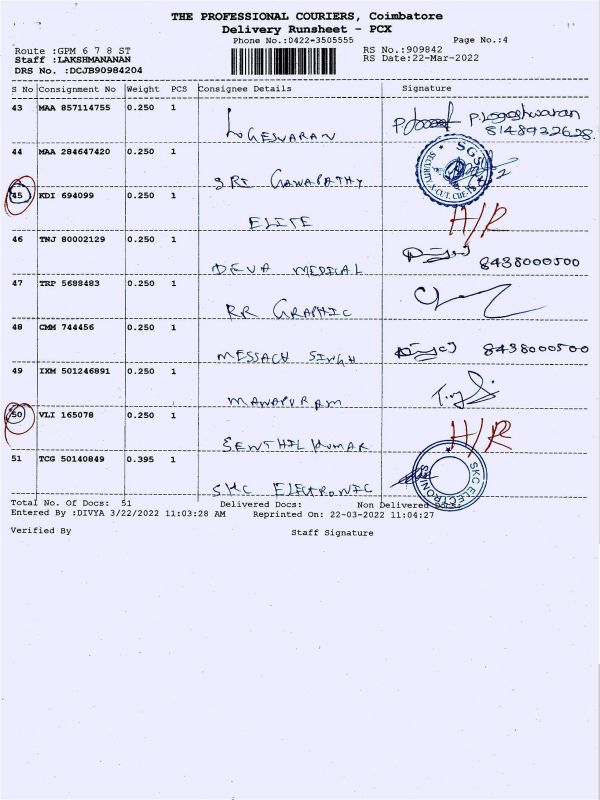 THE PROFESSIONAL COURIERS, Coimbatore
Delivery Runsheet - PCX
Phone No.:0422-3505555 Page No.:4
Route :GPM 6 7 8 ST RS No.:909842
Staff :LAKSHMANANAN RS Date:22-Mar-2022
DRS No. :DCJB90984204
S No Consignment No Weight PCS Consignee Details Signature
43 MAA 857114755 0.250 1
LOGESWARAN P.Logeshwaran
8148922628
44 MAA 284647420 0.250 1
SRI GANAPATHY
45 KDI 694099 0.250 1
ELITE H/R
46 TNJ 80002129 0.250 1
DEVA MEDICAL 8438000500
47 TRP 5688483 0.250 1
RR GRAPHIC
48 CMM 744456 0.250 1
MESSACH SINGH 8438000500
49 IXM 501246891 0.250 1
MANAPURAM
50 VLI 165078 0.250 1
SENTHIL KUMAR H/R
51 TCG 50140849 0.395 1
SKC ELECTRONIC
SKC ELECTRONIC
Total No. Of Docs: 51 Delivered Docs: Non Delivered Docs:
Entered By :DIVYA 3/22/2022 11:03:28 AM Reprinted On: 22-03-2022 11:04:27
Verified By Staff Signature